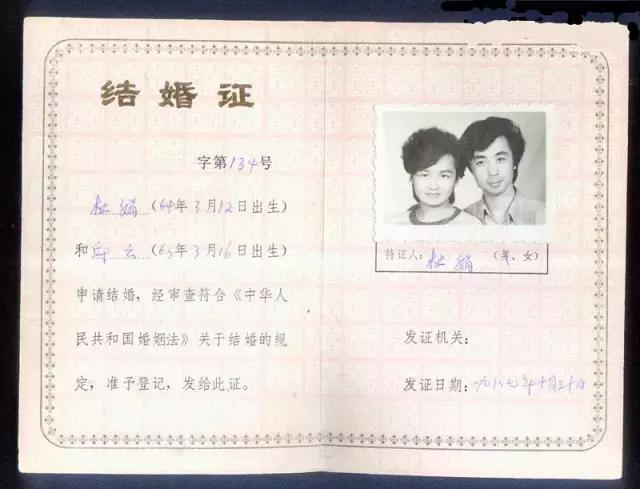 结婚证
字第134号
杜娟(64年3月12日出生)
和邱云(63年3月16日出生)
申请结婚，经审查符合《中华人
民共和国婚姻法》关于结婚的规
定，准予登记，发给此证。
持证人：杜娟(男、女)
发证机关：
发证日期：一九八七年十月三十日